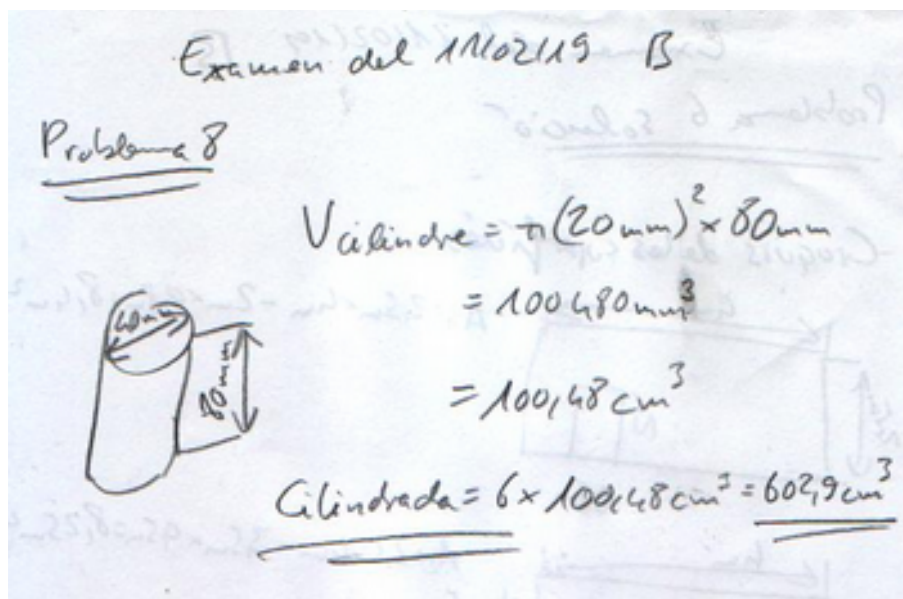 Examen del 11/02/19 B
Problema 8
V cilindre = π(20mm)² × 80mm
= 100480mm³
= 100,48 cm³
40mm
80mm
Cilindrada = 6 × 100,48 cm³ = 602,9 cm³